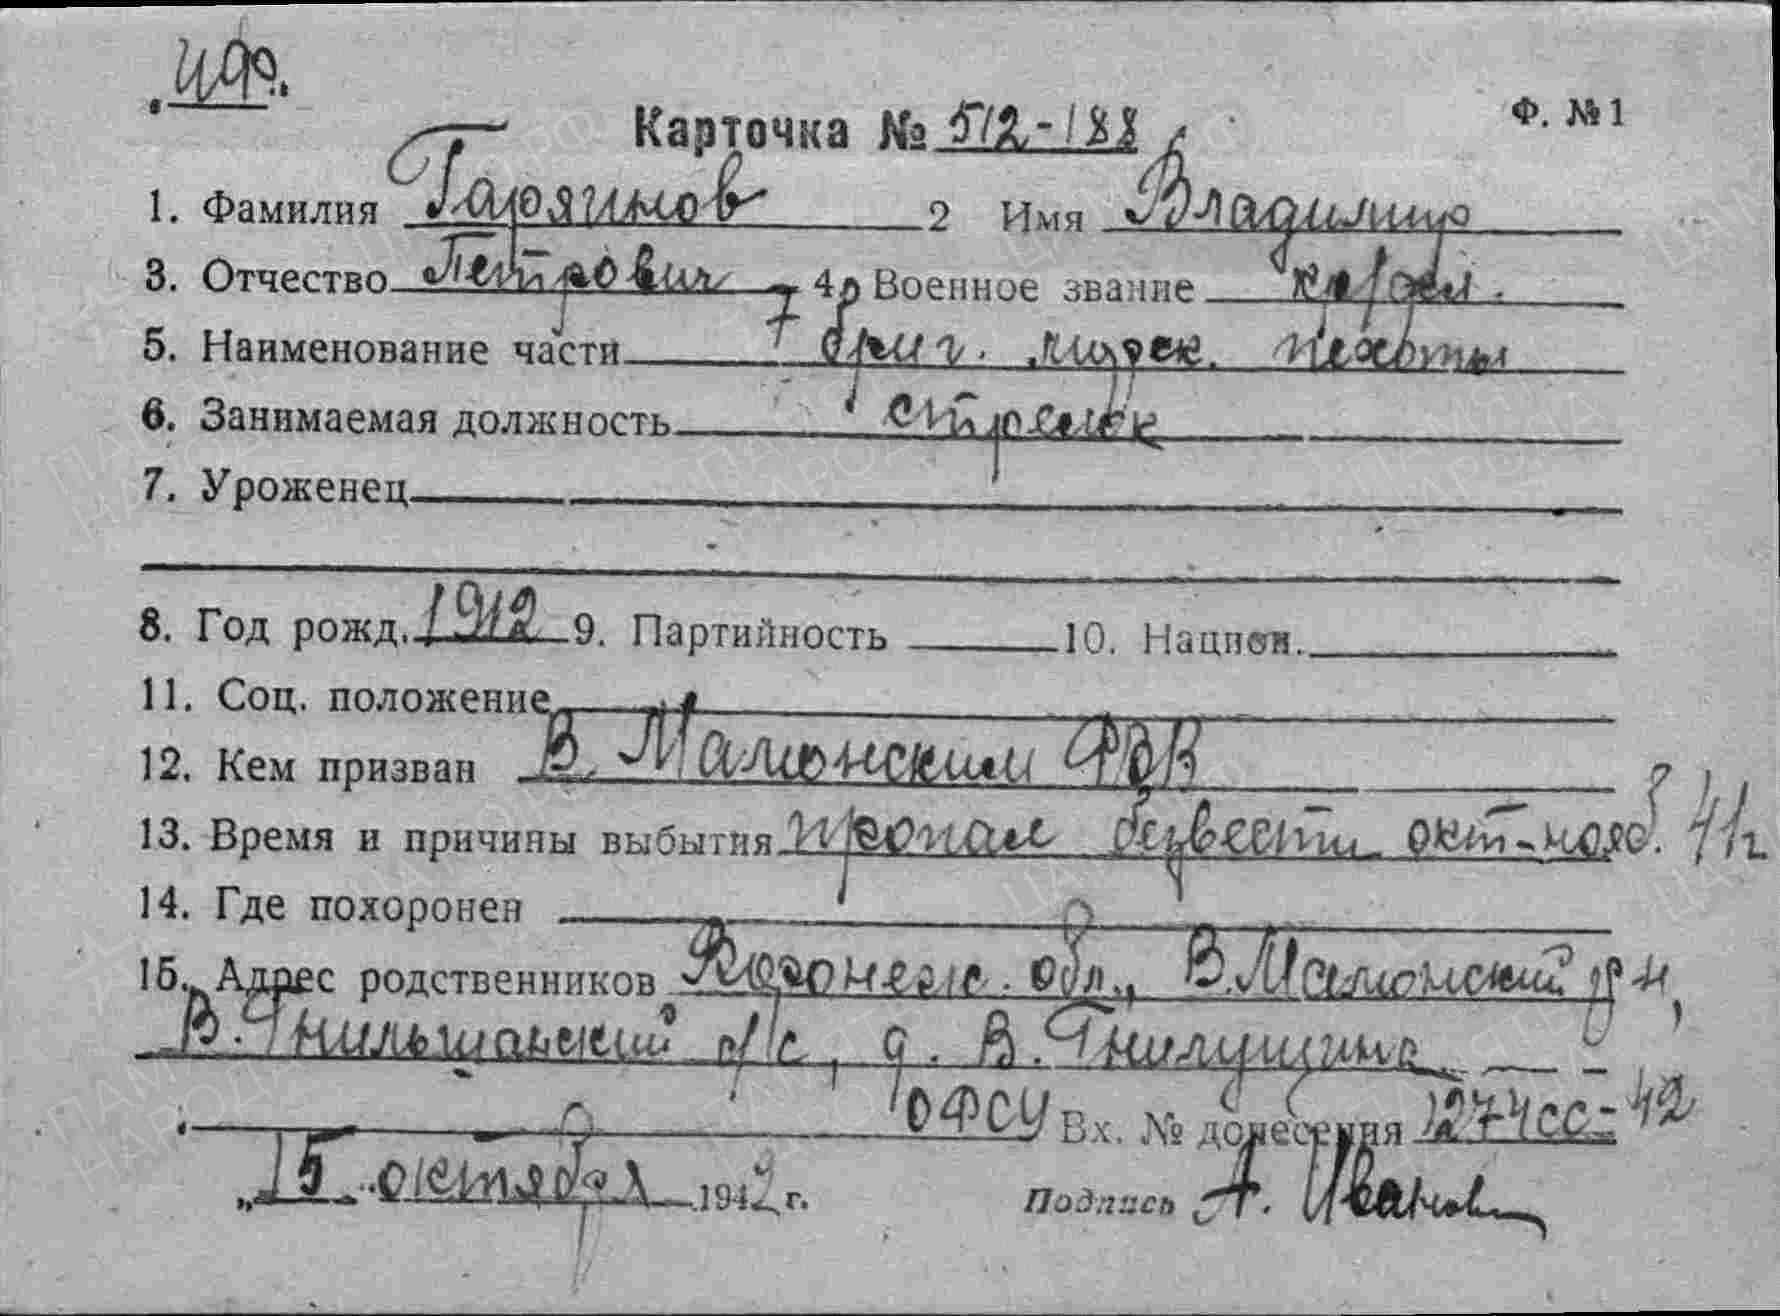 Карточка № 512-188
Ф. № 1
1. Фамилия Гарягинов 2 Имя Владимир
3. Отчество Петрович 4. Военное звание кр/фл.
5. Наименование части 7 бриг. морск. пехоты
6. Занимаемая должность стрелок
7. Уроженец
8. Год рожд. 1912 9. Партийность 10. Национ.
11. Соц. положение
12. Кем призван В. Мамонским РВК
13. Время и причины выбытия пропал безвести окт-нояб. 41г
14. Где похоронен
15. Адрес родственников Воронеж. обл., В. Мамонский р-н,
В. Гнилышанский с/с, д. В. Гнилушина
ОФСУ Вх. № донесения 1274сс-42
„15" октября 1942 г. Подпись А. Иванов